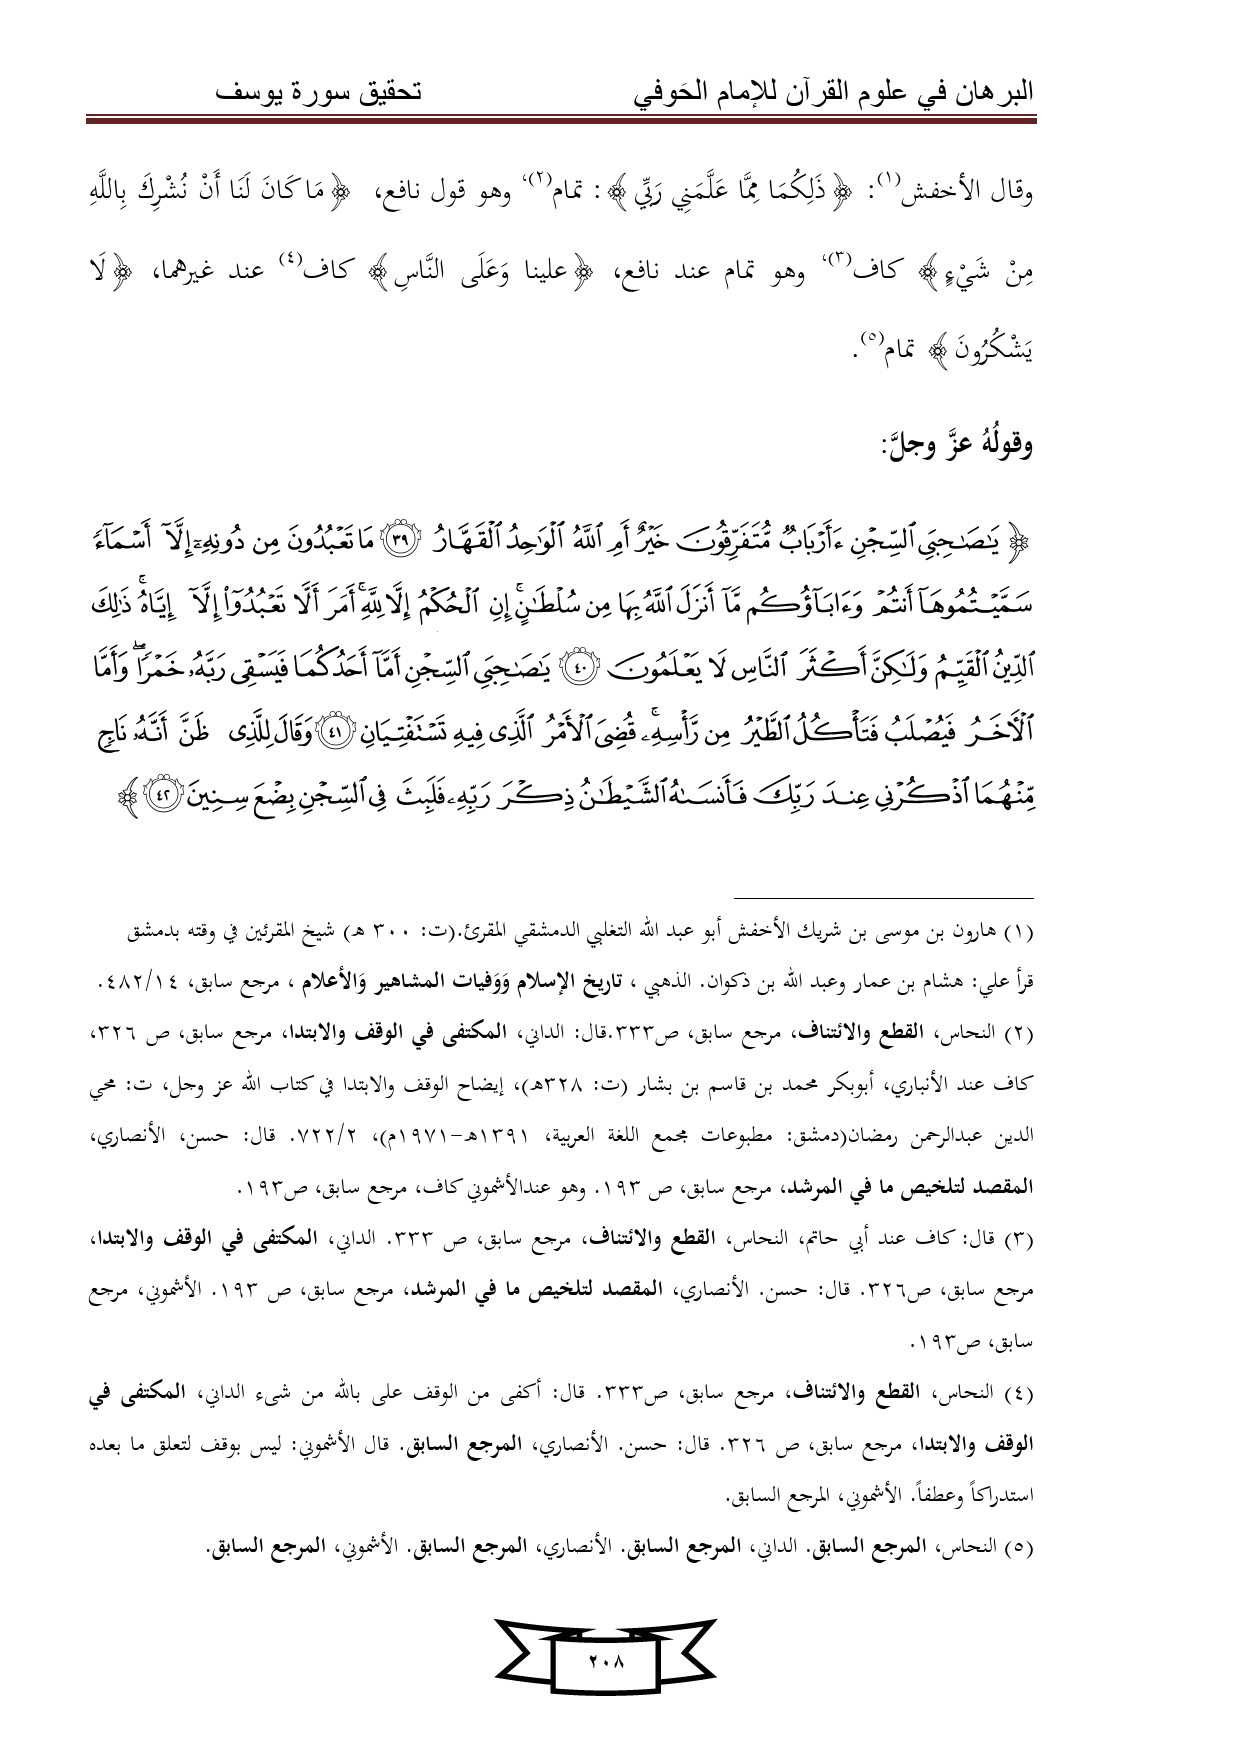 البرهان في علوم القرآن للإمام الحَوفي تحقيق سورة يوسف
وقال الأخفش(١): ﴿ذَلِكُمَا مِمَّا عَلَّمَنِي رَبِّي﴾: تمام(٢)، وهو قول نافع، ﴿مَا كَانَ لَنَا أَنْ نُشْرِكَ بِاللَّهِ
مِنْ شَيْءٍ﴾ كاف(٣)، وهو تمام عند نافع، ﴿علينا وَعَلَى النَّاسِ﴾ كاف(٤) عند غيرهما، ﴿لَا
يَشْكُرُونَ﴾ تمام(٥).
وقولُهُ عزَّ وجلَّ:
﴿يَٰصَٰحِبَىِ ٱلسِّجْنِ ءَأَرْبَابٌ مُّتَفَرِّقُونَ خَيْرٌ أَمِ ٱللَّهُ ٱلْوَٰحِدُ ٱلْقَهَّارُ ٣٩ مَا تَعْبُدُونَ مِن دُونِهِۦٓ إِلَّآ أَسْمَآءً
سَمَّيْتُمُوهَآ أَنتُمْ وَءَابَآؤُكُم مَّآ أَنزَلَ ٱللَّهُ بِهَا مِن سُلْطَٰنٍ ۚ إِنِ ٱلْحُكْمُ إِلَّا لِلَّهِ ۚ أَمَرَ أَلَّا تَعْبُدُوٓا۟ إِلَّآ إِيَّاهُ ۚ ذَٰلِكَ
ٱلدِّينُ ٱلْقَيِّمُ وَلَٰكِنَّ أَكْثَرَ ٱلنَّاسِ لَا يَعْلَمُونَ ٤٠ يَٰصَٰحِبَىِ ٱلسِّجْنِ أَمَّآ أَحَدُكُمَا فَيَسْقِى رَبَّهُۥ خَمْرًا ۖ وَأَمَّا
ٱلْءَاخَرُ فَيُصْلَبُ فَتَأْكُلُ ٱلطَّيْرُ مِن رَّأْسِهِۦ ۚ قُضِىَ ٱلْأَمْرُ ٱلَّذِى فِيهِ تَسْتَفْتِيَانِ ٤١ وَقَالَ لِلَّذِى ظَنَّ أَنَّهُۥ نَاجٍ
مِّنْهُمَا ٱذْكُرْنِى عِندَ رَبِّكَ فَأَنسَىٰهُ ٱلشَّيْطَٰنُ ذِكْرَ رَبِّهِۦ فَلَبِثَ فِى ٱلسِّجْنِ بِضْعَ سِنِينَ ٤٢﴾
(١) هارون بن موسى بن شريك الأخفش أبو عبد الله التغلبي الدمشقي المقرئ.(ت: ٣٠٠ هـ) شيخ المقرئين في وقته بدمشق
قرأ علي: هشام بن عمار وعبد الله بن ذكوان. الذهبي ، تاريخ الإسلام وَوَفيات المشاهير وَالأعلام ، مرجع سابق، ٤٨٢/١٤.
(٢) النحاس، القطع والائتناف، مرجع سابق، ص٣٣٣.قال: الداني، المكتفى في الوقف والابتدا، مرجع سابق، ص ٣٢٦،
كاف عند الأنباري، أبوبكر محمد بن قاسم بن بشار (ت: ٣٢٨هـ)، إيضاح الوقف والابتدا في كتاب الله عز وجل، ت: محي
الدين عبدالرحمن رمضان(دمشق: مطبوعات مجمع اللغة العربية، ١٣٩١هـ-١٩٧١م)، ٧٢٢/٢. قال: حسن، الأنصاري،
المقصد لتلخيص ما في المرشد، مرجع سابق، ص ١٩٣. وهو عندالأشموني كاف، مرجع سابق، ص١٩٣.
(٣) قال: كاف عند أبي حاتم، النحاس، القطع والائتناف، مرجع سابق، ص ٣٣٣. الداني، المكتفى في الوقف والابتدا،
مرجع سابق، ص٣٢٦. قال: حسن. الأنصاري، المقصد لتلخيص ما في المرشد، مرجع سابق، ص ١٩٣. الأشموني، مرجع
سابق، ص١٩٣.
(٤) النحاس، القطع والائتناف، مرجع سابق، ص٣٣٣. قال: أكفى من الوقف على بالله من شىء الداني، المكتفى في
الوقف والابتدا، مرجع سابق، ص ٣٢٦. قال: حسن. الأنصاري، المرجع السابق. قال الأشموني: ليس بوقف لتعلق ما بعده
استدراكاً وعطفاً. الأشموني، المرجع السابق.
(٥) النحاس، المرجع السابق. الداني، المرجع السابق. الأنصاري، المرجع السابق. الأشموني، المرجع السابق.
٢٠٨